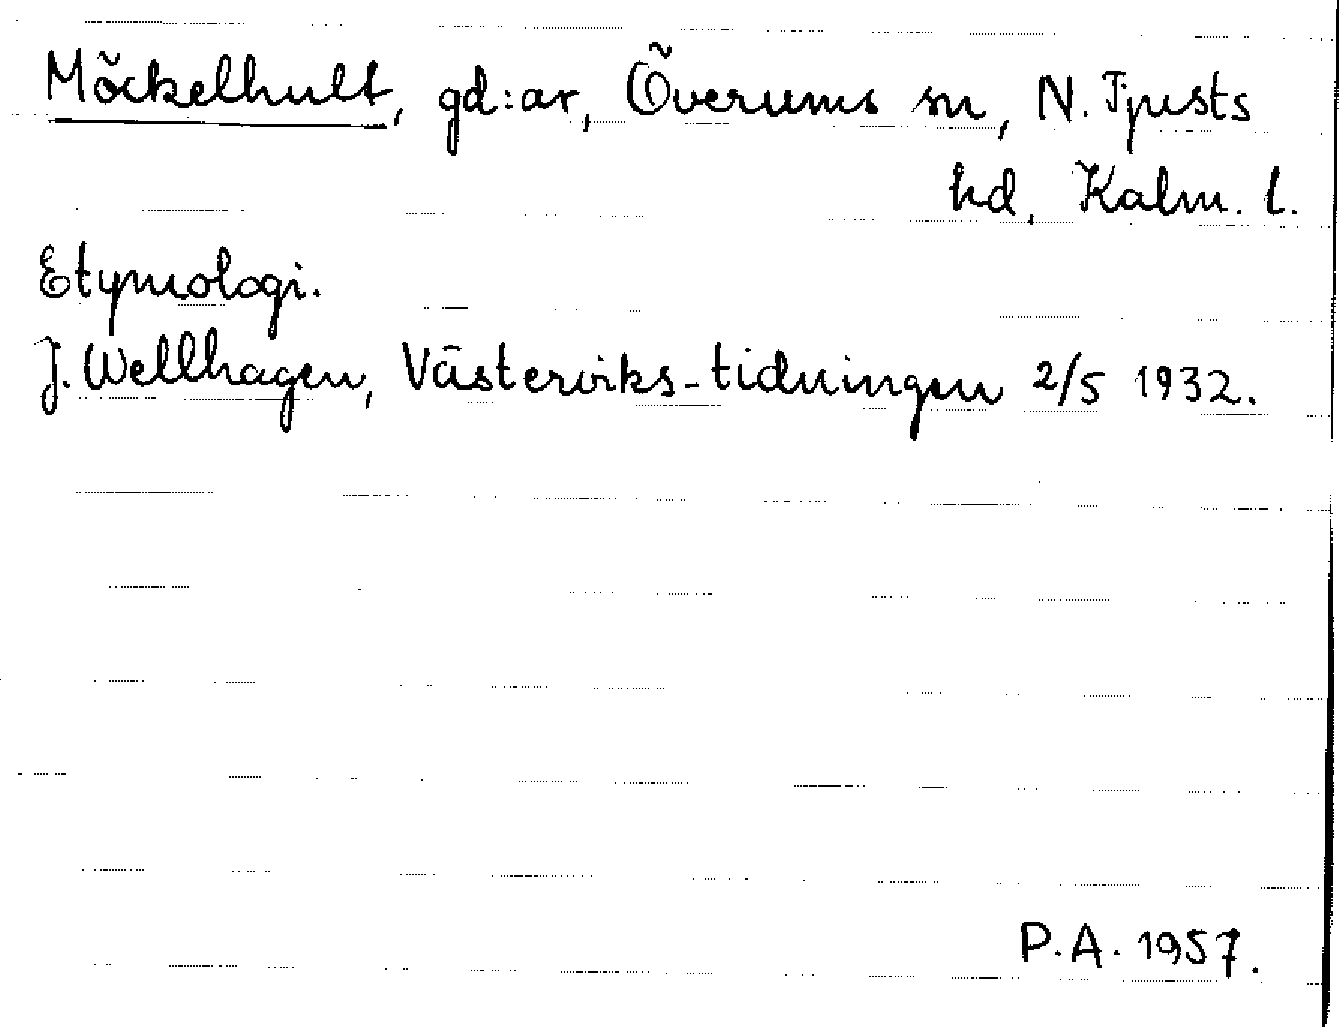 Möckelhult, gd:ar, Överums sn, N. Tjusts
hd, Kalm. l.
Etymologi.
J. Wellhagen, Västerviks-tidningen 2/5 1932.
P.A. 1957.